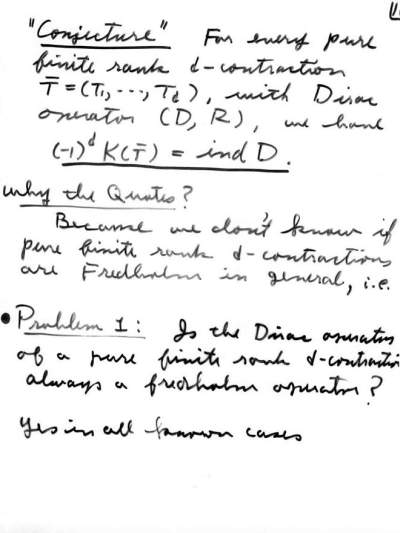 "Conjecture" For every pure
finite rank d-contraction
T̄ = (T₁, ..., T_d), with Dirac
operator (D, R), we have
(-1)^d K(T̄) = ind D.
Why the Quotes?
Because we don't know if
pure finite rank d-contractions
are Fredholm in general, i.e.
• Problem 1: Is the Dirac operator
of a pure finite rank d-contraction
always a Fredholm operator?
Yes in all known cases